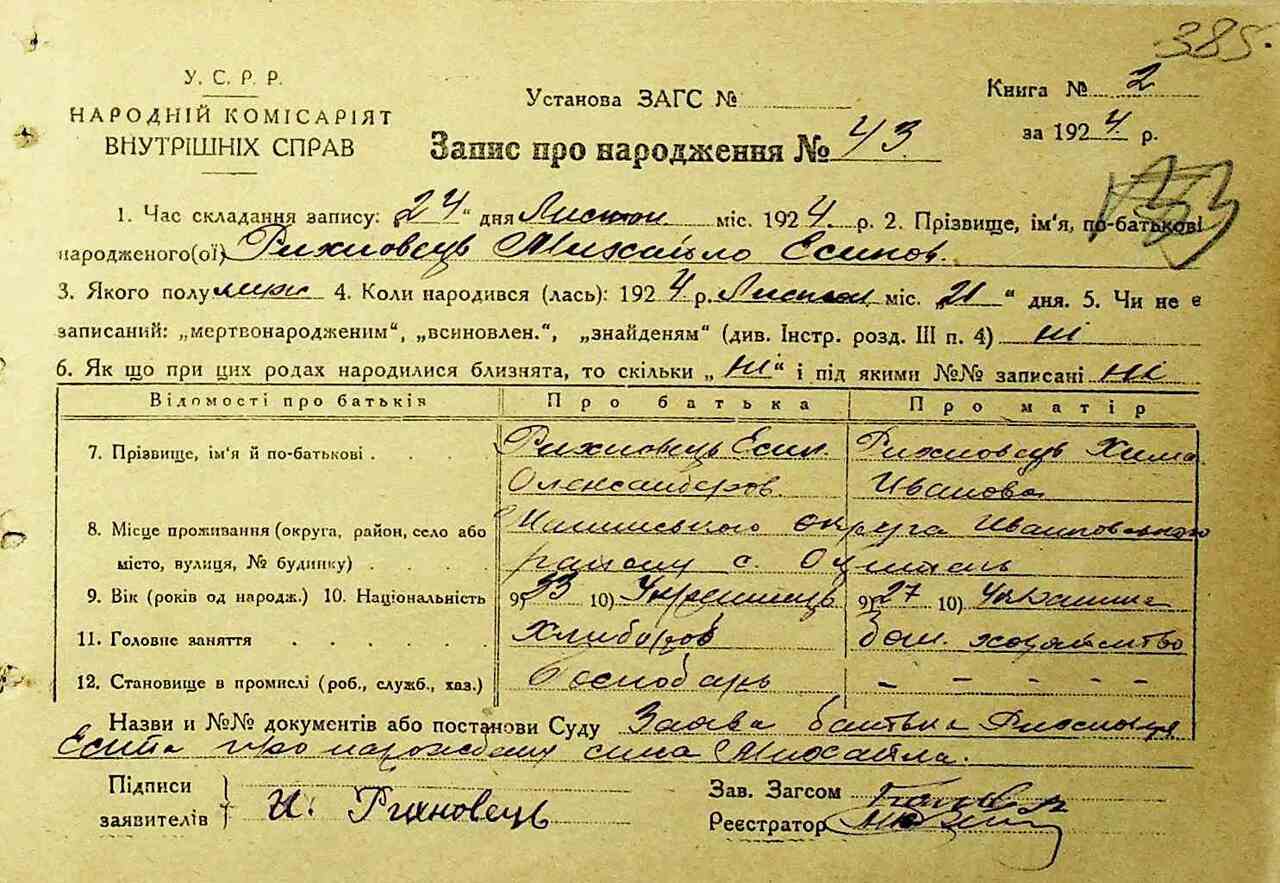 385.
У. С. Р. Р.
НАРОДНІЙ КОМІСАРІЯТ
ВНУТРІШНІХ СПРАВ
Установа ЗАГС №
Книга № 2
за 1924 р.
Запис про народження № 43.
1. Час складання запису: „24“ дня Листоп міс. 1924 р. 2. Прізвище, ім'я, по-батькові
народженого(ої) Рихновець Михайло Есипов.
3. Якого полу муж 4. Коли народився (лась): 1924 р. Листоп міс. „21“ дня. 5. Чи не є
записаний: „мертвонародженим“, „всиновлен.“, „знайденям“ (див. Інстр. розд. III п. 4) ні
6. Як що при цих родах народилися близнята, то скільки „ні“ і під якими №№ записані ні
Відомості про батьків Про батька Про матір
7. Прізвище, ім'я й по-батькові . . . Рихновець Есип Рихновець Хима
Олександров. Иванова
8. Місце проживання (округа, район, село або округа
місто, вулиця, № будинку) . . . . району с.
9. Вік (років од народж.) 10. Національність 9) 33 10) Украинець 9) 27 10) Украинка
11. Головне заняття . . . . . . Хлибороб Дом. хозяйство
12. Становище в промислі (роб., служб., хаз.) Господарь – – – – –
Назви и №№ документів або постанови Суду Заява батька Рихновця
Есипа про сина Михайла.
Підписи
заявителів И. Рихновець
Зав. Загсом
Реєстратор